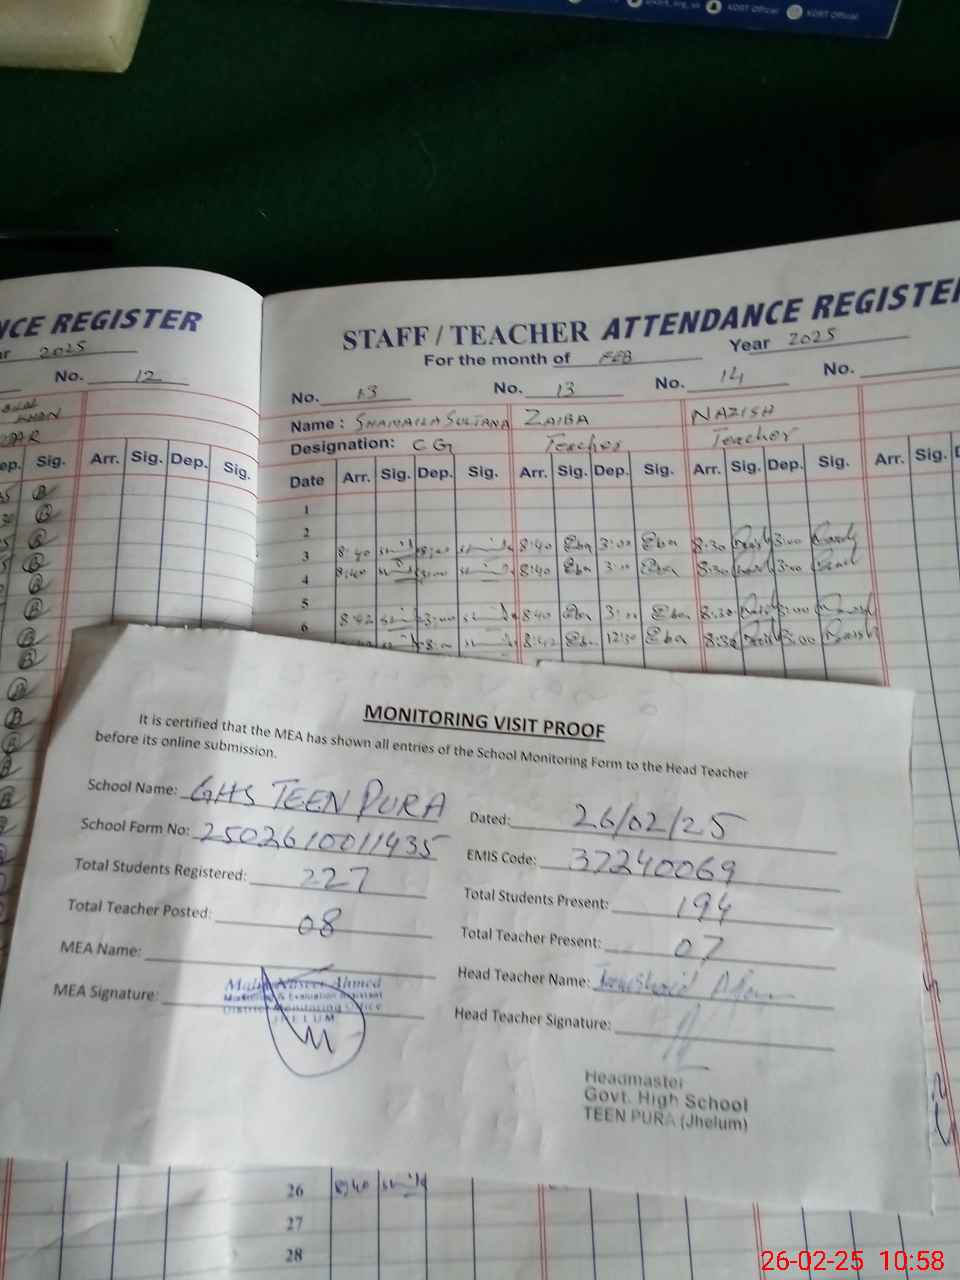 KORT Official
KORT Official
NCE REGISTER
2025
No. 12
KHAN
ep. Sig. Arr. Sig. Dep. Sig.
STAFF / TEACHER ATTENDANCE REGISTER
For the month of FEB Year 2025
No. 13 No. 13 No. 14 No.
Name: SHAMAILA SULTANA ZAIBA NAZISH
Designation: CG Teacher Teacher
Date Arr. Sig. Dep. Sig. Arr. Sig. Dep. Sig. Arr. Sig. Dep. Sig. Arr. Sig.
1
2
3 8:40 8:40 3:00 8:30 3:00
4 8:40 3:00 8:40 3:00 8:30 3:00
5
6 8:42 3:00 8:40 3:00 8:30 3:00
8:42 12:30 8:30 3:00
MONITORING VISIT PROOF
It is certified that the MEA has shown all entries of the School Monitoring Form to the Head Teacher
before its online submission.
School Name: GHS TEEN PURA Dated: 26/02/25
School Form No: 2502610011435 EMIS Code: 37240069
Total Students Registered: 227 Total Students Present: 194
Total Teacher Posted: 08 Total Teacher Present: 07
MEA Name: Head Teacher Name:
MEA Signature: Head Teacher Signature:
Naseer Ahmed
Monitoring & Evaluation Assistant
District Monitoring Office
JHELUM
Headmaster
Govt. High School
TEEN PURA (Jhelum)
26 8:40
27
28
26-02-25 10:58